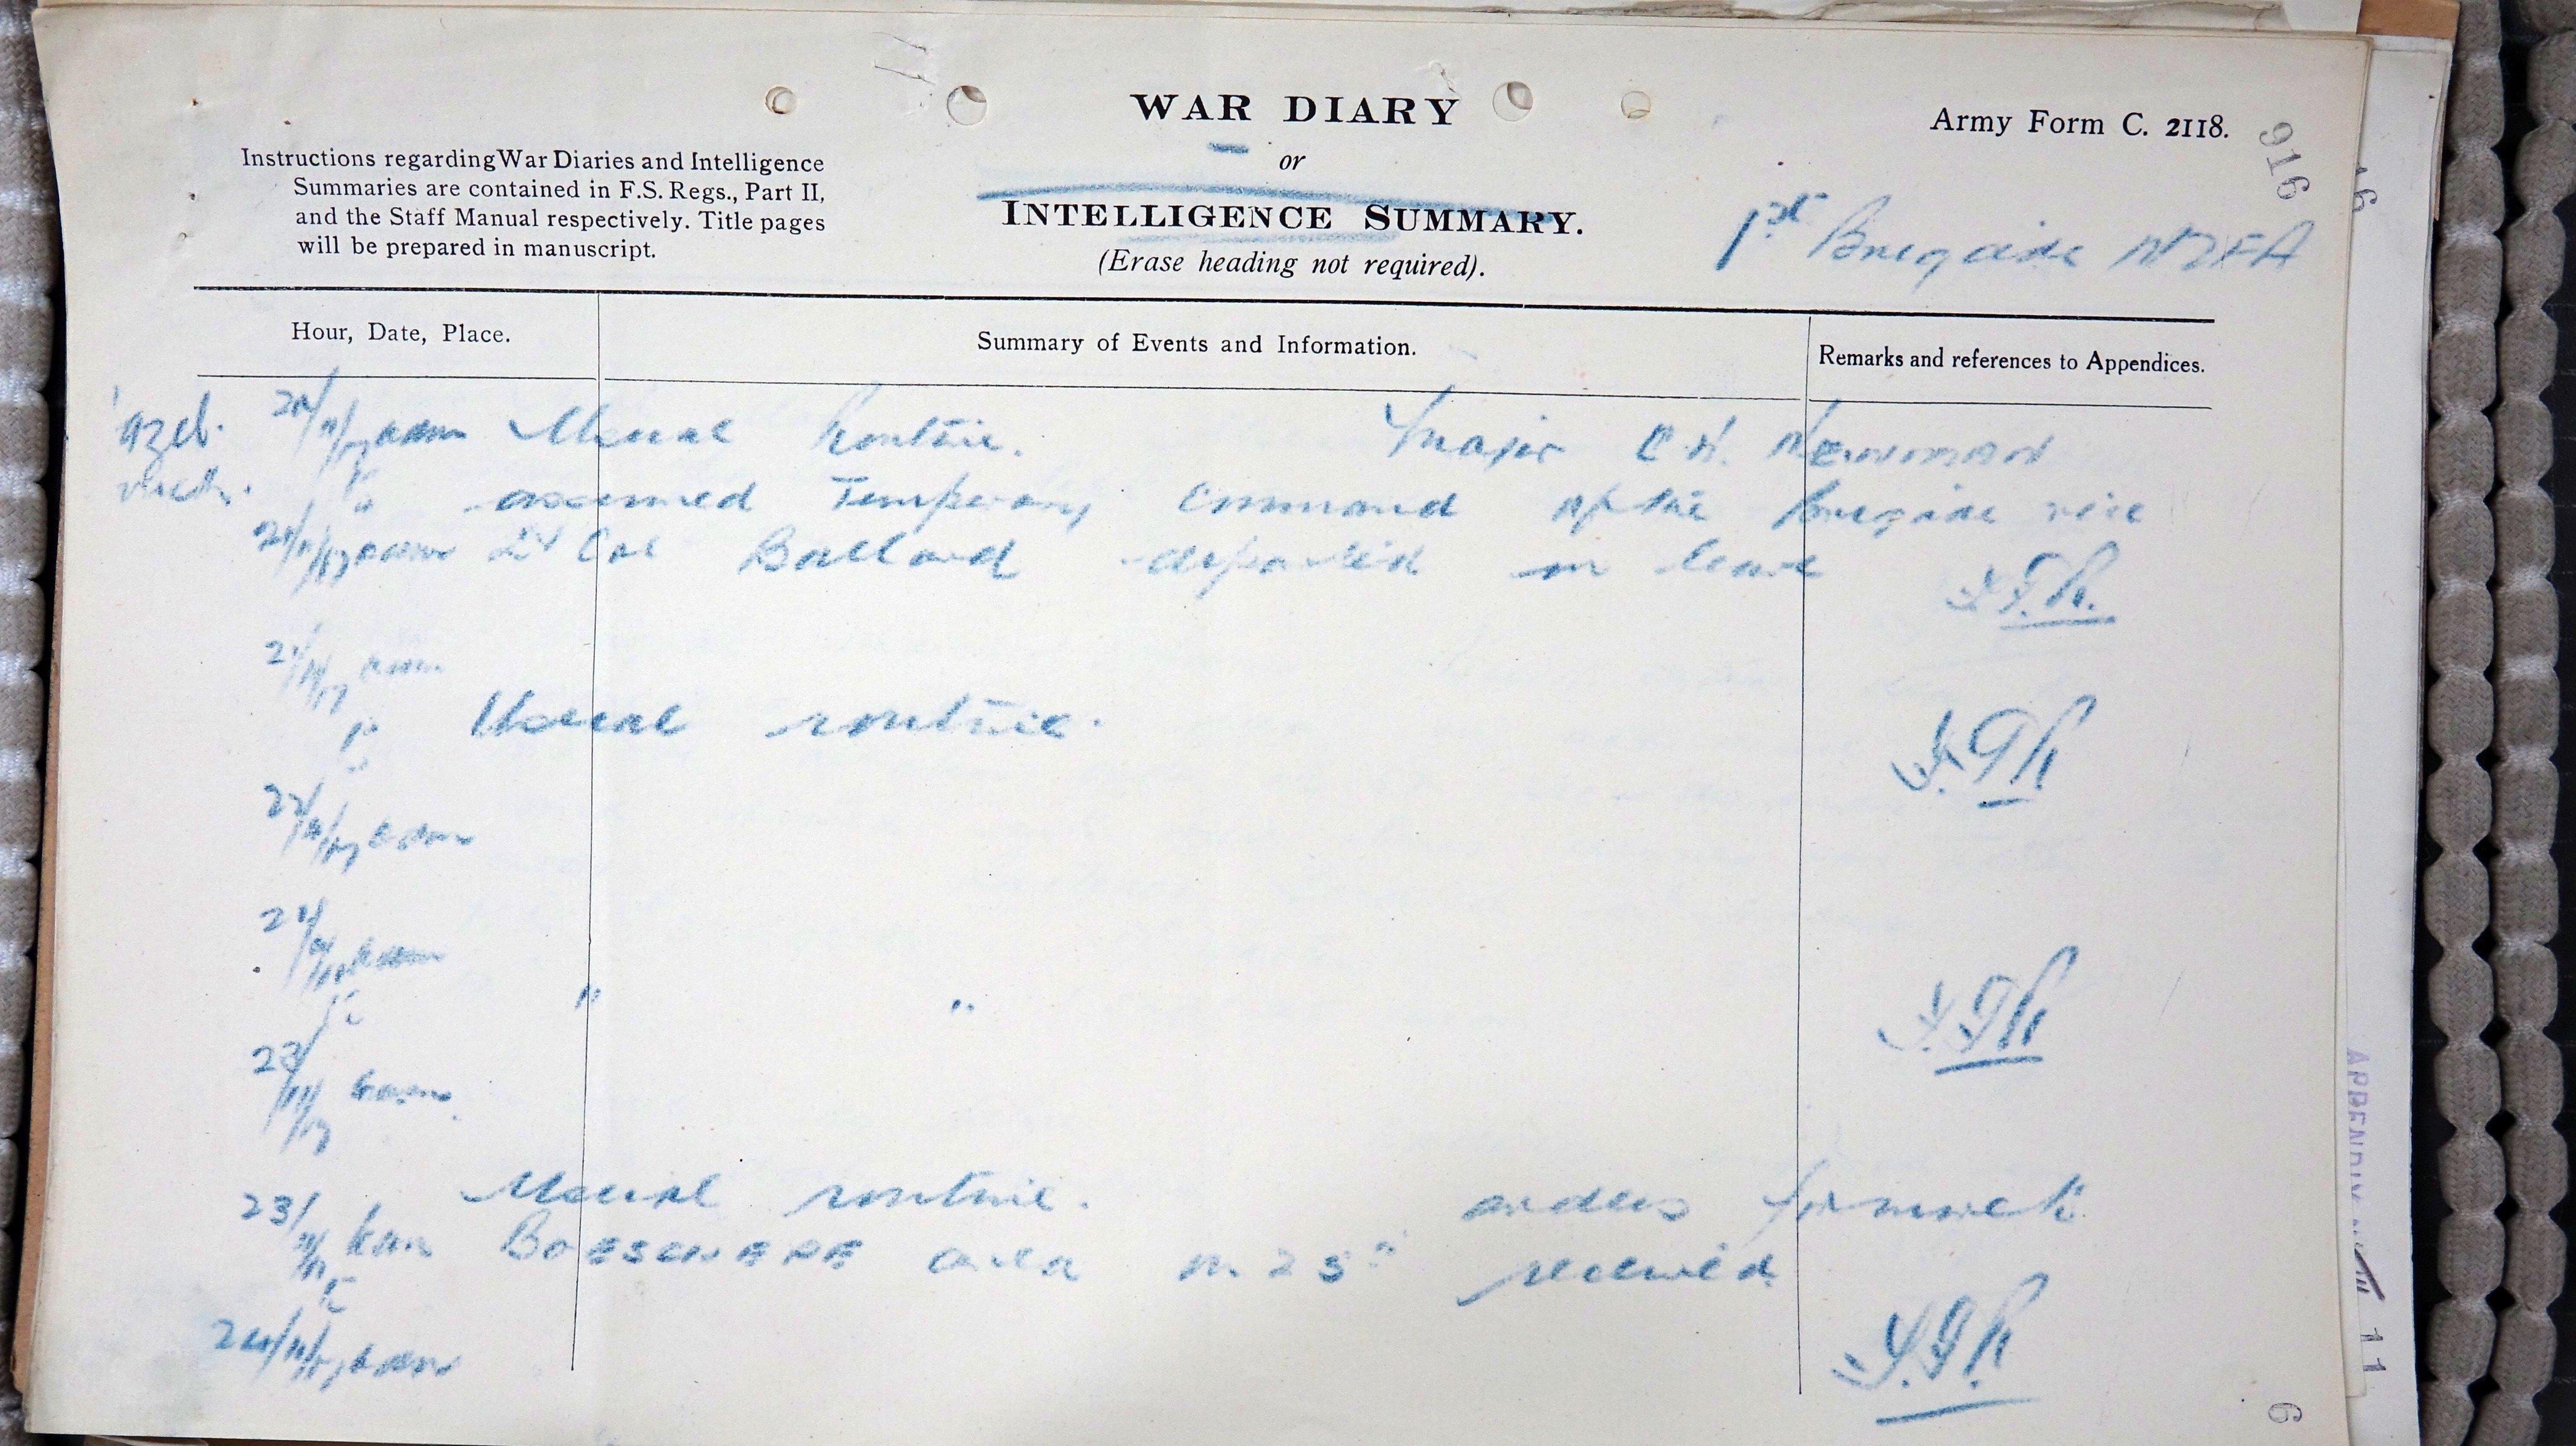 WAR DIARY
or
INTELLIGENCE SUMMARY.
(Erase heading not required).
Army Form C. 2118.
916
Instructions regarding War Diaries and Intelligence
Summaries are contained in F.S. Regs., Part II,
and the Staff Manual respectively. Title pages
will be prepared in manuscript.
1st Brigade NZFA
Hour, Date, Place.
Summary of Events and Information.
Remarks and references to Appendices.
Usual Routine. Major C.N. NEWMAN
assumed Temporary Command of the Brigade vice
Lt Col Ballard departed on leave
21/11/17 6am
to
Usual routine.
22/11/17 6am
to
" "
23/11/17 6am
Usual routine. orders for march to
23/11/17 6am BOESCHEPE area on 25" received
to
24/11/17 6am
6
APPENDIX
11